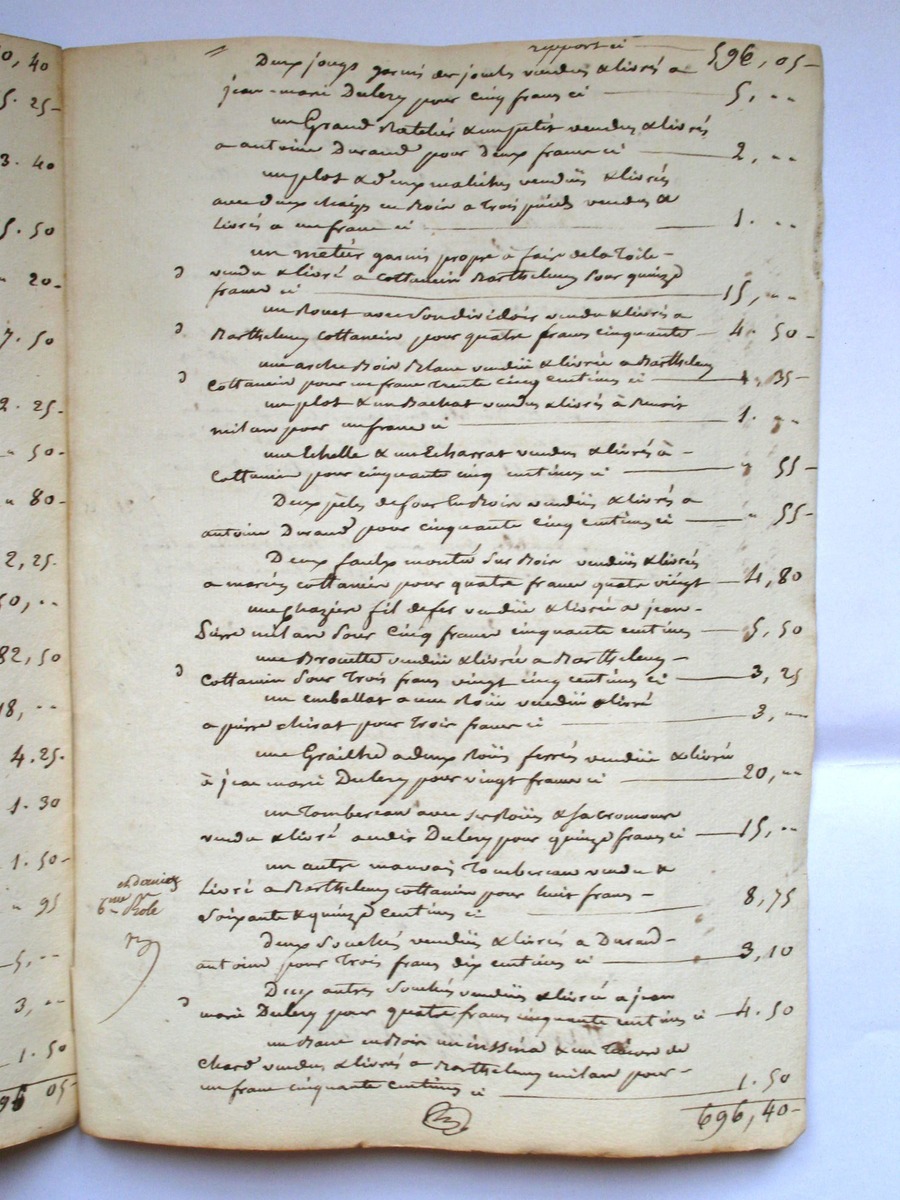 rapport ci — 596,05
Deux jougs garnis de joucles vendus & livrés a
jean-marie Dulery pour cinq francs ci — 5, ..
un Grand Ratelier & un petit vendus & livrés
a antoine Durand pour deux francs ci — 2, ..
un plot & deux vendus & livrés
avec deux en Bois a trois pieds vendus &
livrés a un franc ci — 1. ..
un metier garnis propre a fair de la Toile
vendu & livré a Cottancin Barthelemy pour quinze
francs ci — 15, ..
un Rouet avec son dividoir vendu & livrés a
Barthelemy Cottancin pour quatre francs cinquante — 4. 50
une arche Bois Blanc vendüe & livrée a Barthelemy
Cottancin pour un franc trente cinq centimes ci — 1. 35
un plot & un Bachat vendus & livrés à Benoit
milan pour un franc ci — 1. ..
une Echelle & un Echarrat vendus & livrés à
Cottancin pour cinquante cinq centimes ci — " 55
Deux pèles de four en Bois vendües & livrés a
antoine Durand pour cinquante cinq centimes ci — " 55
Deux faulx monté sur Bois vendües & livrés
a Cottancin pour quatre francs quatre vingt — 4, 80
une fil de fer vendüe & livrée a jean-
milan pour cinq francs cinquante centimes — 5, 50
une Brouette vendüe & livrée a Barthelemy
Cottancin pour trois francs vingt cinq centimes ci — 3, 25
un emballat a une Roüe vendüe & livré
a pierre pour trois francs ci — 3, ..
une a deux Roües ferrés vendüe & livrée
à jean marie Dulery pour vingt francs ci — 20, ..
un tombereau avec ses Roües & sa
vendu & livré audit Dulery pour quinze francs ci — 15, ..
un autre mauvais tombereau vendu &
livré a Barthelemy Cottancin pour huit francs
soixante & quinze centimes ci — 8, 75
et dernier
6me Role
Deux vendües & livrées a Durand
antoine pour trois francs dix centimes ci — 3, 10
Deux autres vendües & livrée a jean
marie Dulery pour quatre francs cinquante centimes ci — 4. 50
un Banc en Bois & un de
vendus & livrés a Barthelemy milan pour
un franc cinquante centimes ci — 1. 50
696, 40
0, 40
5. 25
3. 40
5. 50
" 20
7. 50
2. 25
" 50
" 80
2, 25
50, ..
82, 50
18, ..
4. 25
1. 30
1. 50
" 95
5, ..
3, ..
1. 50
96 05